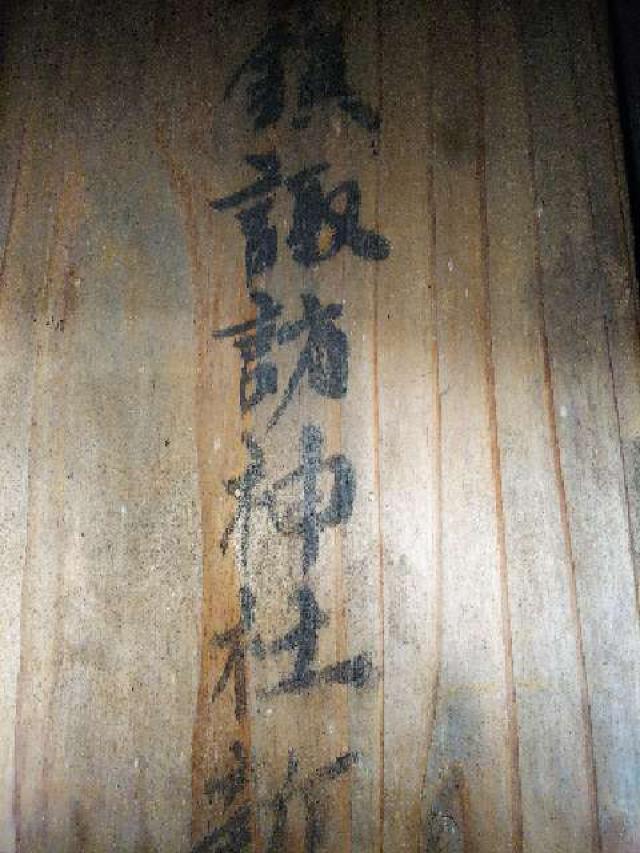 鎮諏訪神社